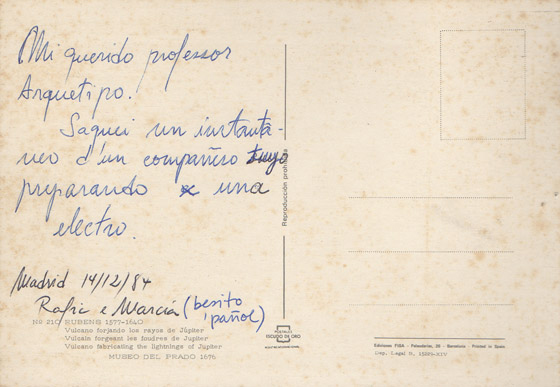 Mi querido professor
Arquetipo.
Saquei un instantá-
neo d'un compañero tuyo
preparando una
electro.
Madrid 14/12/84
Rafic e Marcia (besito
'pañol)
Reproducción prohibida
RUBENS 1577-1640
Vulcano forjando los rayos de Júpiter
Vulcain forgeant les foudres de Jupiter
Vulcano fabricating the lightnings of Jupiter
MUSEO DEL PRADO 1676
POSTALES
ESCUDO DE ORO
Ediciones FISA - Palaudarias, 26 - Barcelona - Printed in Spain
Dep. Legal B.